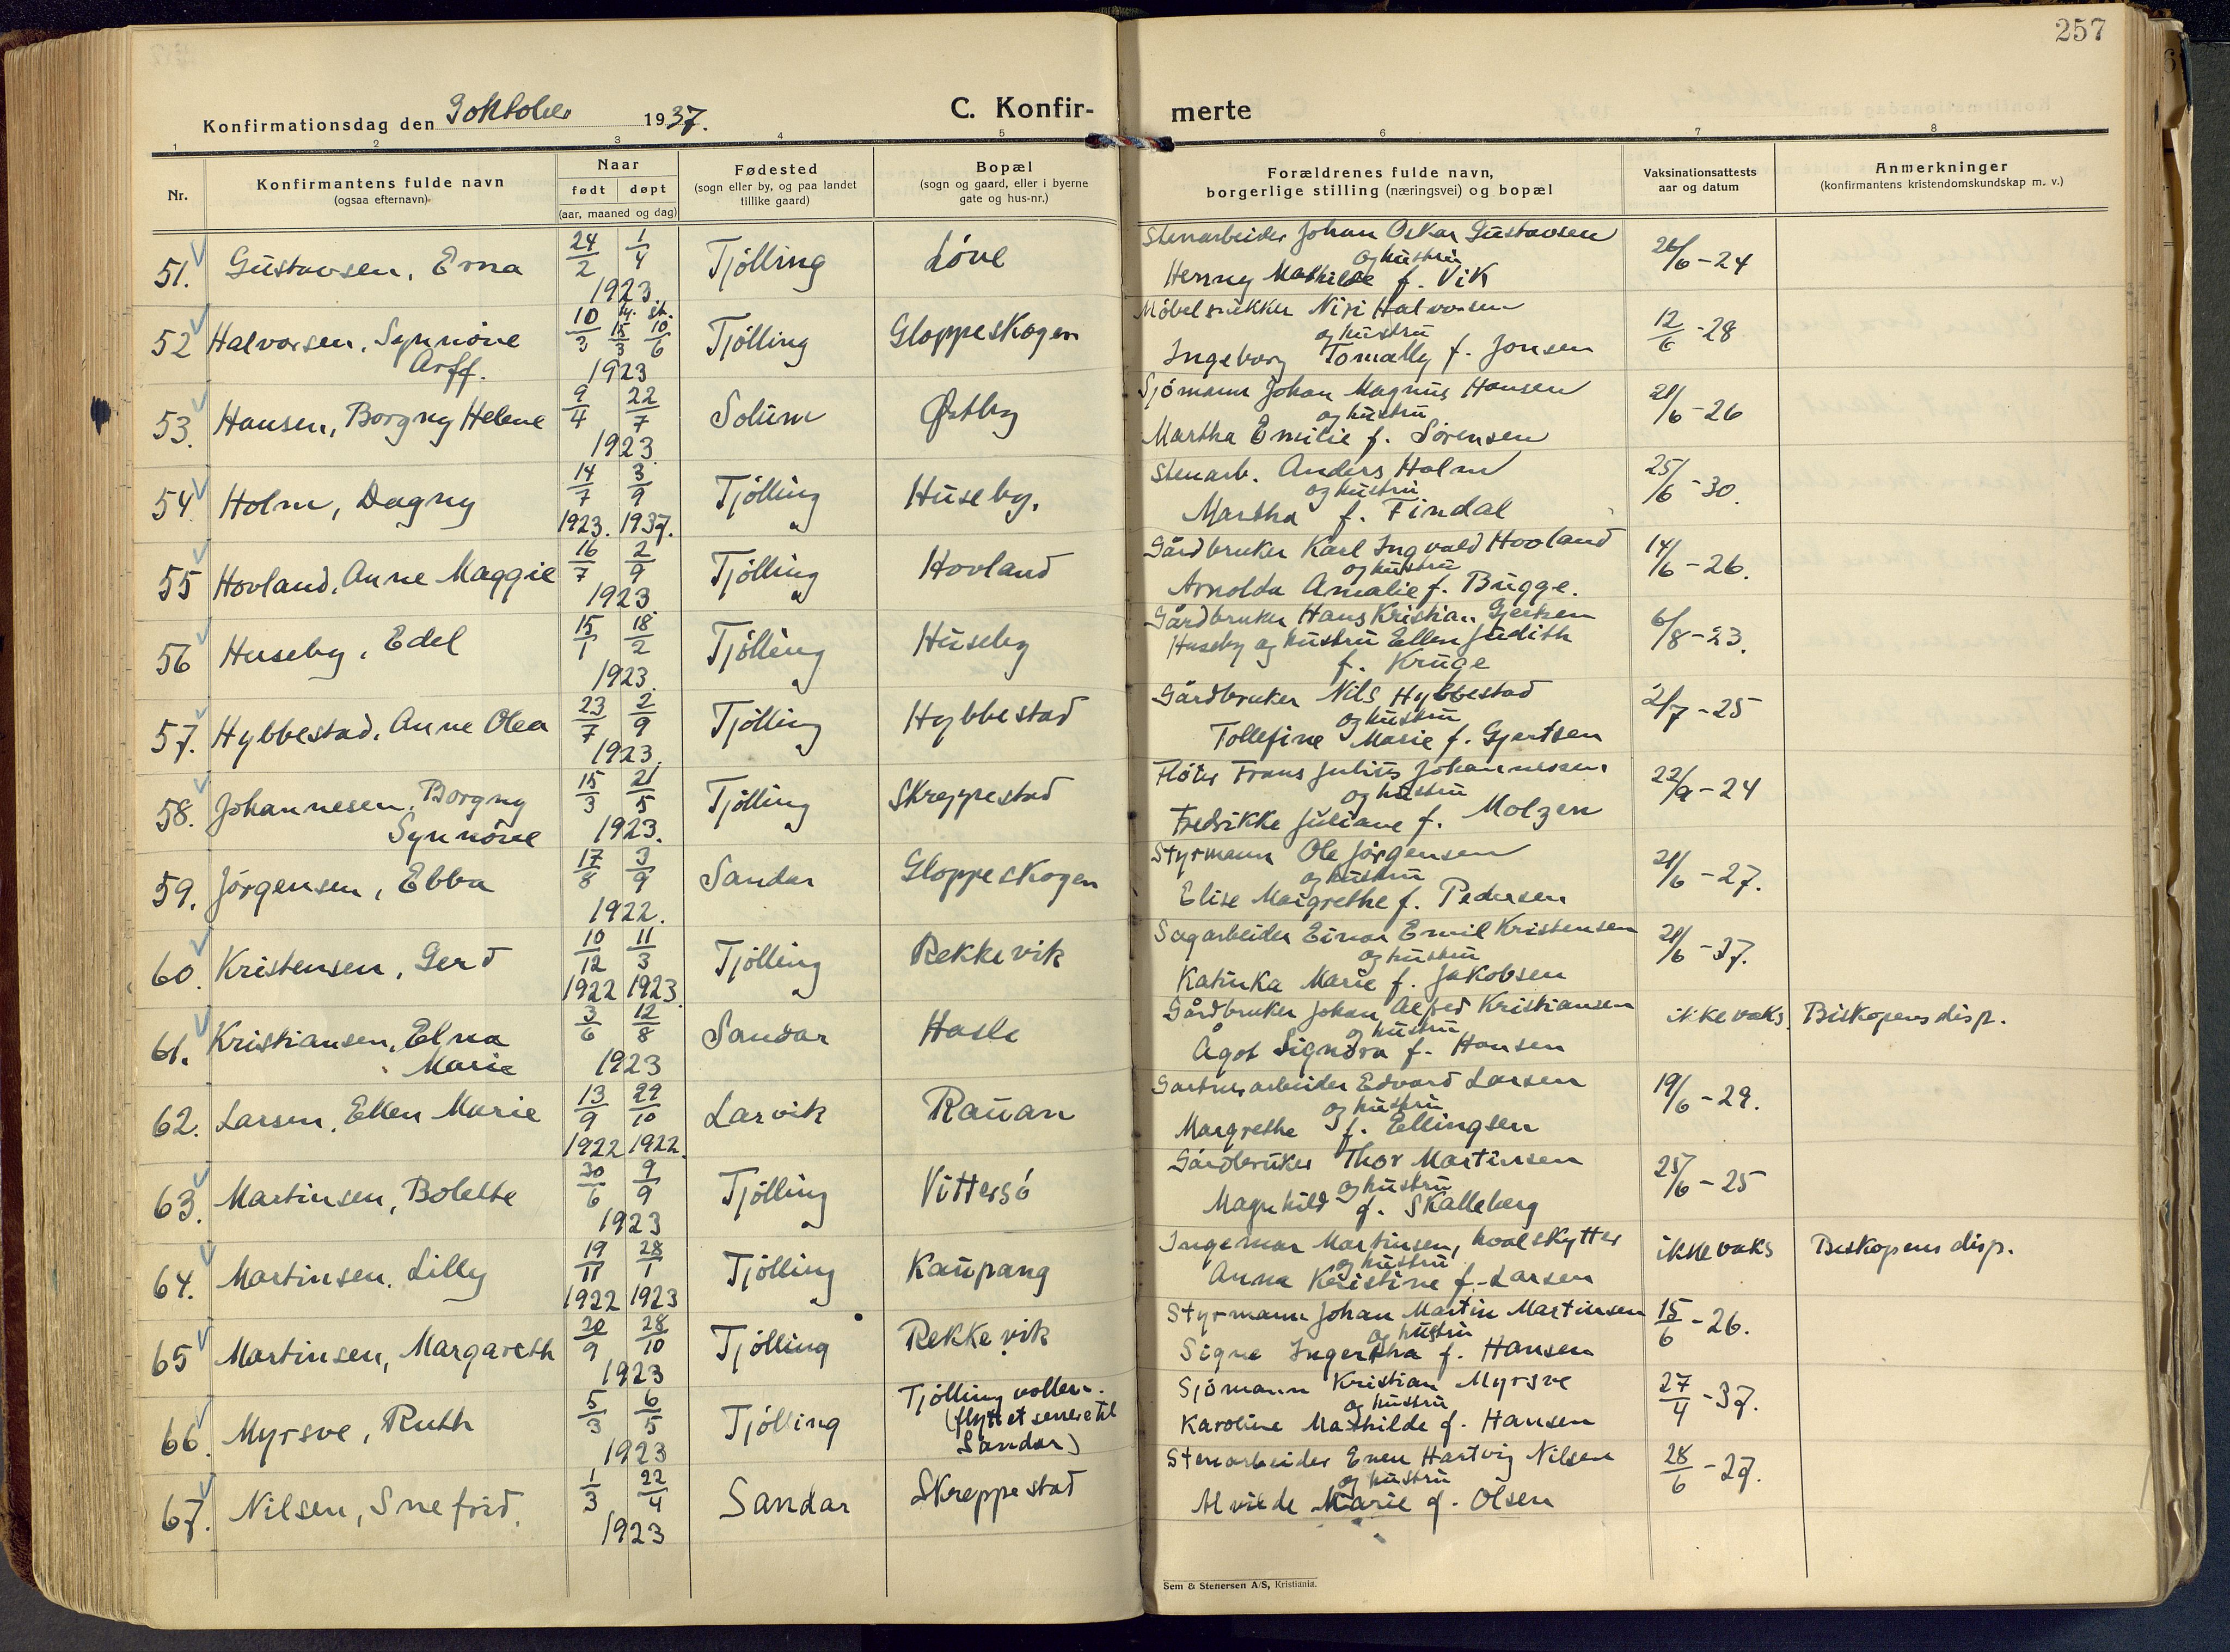 257
Konfirmationsdag den 3 oktober 1937.
C. Konfir-
merte
1 2 3 4 5 6 7 8
Nr.
Konfirmantens fulde navn
(ogsaa efternavn)
Naar
født døpt
(aar, maaned og dag)
Fødested
(sogn eller by, og paa landet
tillike gaard)
Bopæl
(sogn og gaard, eller i byerne
gate og hus-nr.)
Forældrenes fulde navn,
borgerlige stilling (næringsvei) og bopæl
Vaksinationsattests
aar og datum
Anmerkninger
(konfirmantens kristendomskundskap m. v.)
51. Gustavsen, Erna 24/2 1/4 1923 Tjølling Løve
Stenarbeider Johan Oskar Gustavsen
og hustru
Henny Mathilde f. Vik
26/6-24
52 Halvorsen, Synnöve
Arff.
10/3 hj. 15/3 st. 10/6 1923 Tjølling Gloppeskogen
Möbelsnekker Nisi Halvorsen
og hustru
Ingeborg Tomally f. Jonsen
12/6-28
53. Hansen, Borgny Helene 9/4 22/7 1923 Solum Østby
Sjömann Johan Magnus Hansen
og hustru
Martha Emilie f. Sörensen
21/6-26
54 Holm, Dagny 14/7 3/9 1923. 1937. Tjølling Huseby.
Stenarb. Anders Holm
og hustru
Martha f. Findal
25/6-30.
55 Hovland, Anne Maggie 16/7 2/9 1923 Tjølling Hovland
Gårdbruker Karl Ingvald Hovland
og hustru
Arnolda Amalie f. Bugge.
14/6-26.
56 Huseby, Edel 15/1 18/2 1923 Tjølling Huseby
Gårdbruker Hans Kristian Gjertsen
Huseby og hustru Ellen Judith
f. Kruge
6/8-23.
57. Hybbestad, Anne Olea 23/7 2/9 1923. Tjølling Hybbestad
Gårdbruker Nils Hybbestad
og hustru
Tollefine Marie f. Gjertsen
2/7-25
58. Johannesen, Borgny
Synnöve
15/3 21/5 1923. Tjølling Skreppestad
Fløter Frans Julius Johannessen
og hustru
Fredrikke Juliane f. Molzen
22/9-24
59. Jörgensen, Ebba 17/8 3/9 1922. Sandar Gloppeskogen
Styrmann Ole Jörgensen
og hustru
Elise Margrethe f. Pedersen
21/6-27.
60. Kristensen, Gerd 10/12 11/3 1922 1923 Tjølling Rekkevik
Sagarbeider Einar Emil Kristensen
og hustru
Katinka Marie f. Jakobsen
21/6-37.
61. Kristiansen, Elna
Marie
3/6 12/8 1923 Sandar Hasle
Gårdbruker Johan Alfred Kristiansen
og hustru
Ågot Signora f. Hansen
ikke vaks. Biskopens disp.
62. Larsen, Ellen Marie 13/9 29/10 1922 1922. Larvik Rauan
Gartnerarbeider Edvard Larsen
og hustru
Margrethe f. Ellingsen
19/6-29.
63. Martinsen, Bolette 30/6 9/9 1923 Tjølling Vittersö
Gårdbruker Thor Martinsen
og hustru
Magnhild f. Skalleberg
25/6-25
64. Martinsen, Lilly 19/11 28/1 1922 1923 Tjølling Kaupang
Ingemar Martinsen, hvalskytter
og hustru
Anna Kristine f. Larsen
ikke vaks Biskopens disp.
65 Martinsen, Margareth 20/9 28/10 1923 Tjølling Rekkevik
Styrmann Johan Martin Martinsen
og hustru
Signe Ingertha f. Hansen
15/6-26.
66. Myrsve, Ruth 5/3 6/5 1923 Tjølling
Tjølling vollen.
(flyttet senere til
Sandar)
Sjömann Kristian Myrsve
og hustru
Karoline Mathilde f. Hansen
27/4-37.
67. Nilsen, Snefrid. 1/3 22/4 1923 Sandar Skreppestad
Stenarbeider Even Hartvig Nilsen
og hustru
Alvilde Marie f. Olsen
28/6-27.
Sem & Stenersen A/S, Kristiania.